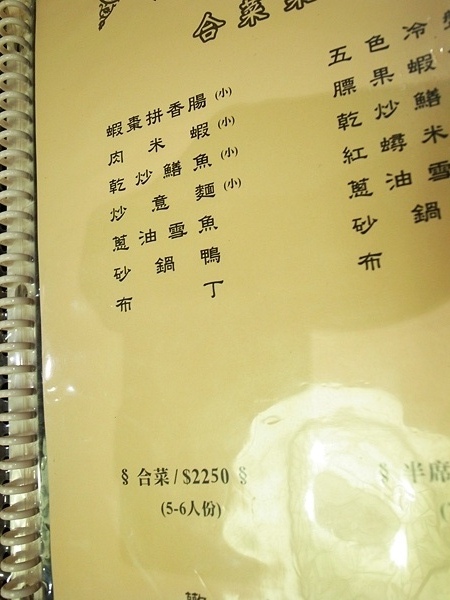 合菜菜
蝦棗拼香腸(小)
肉米蝦(小)
乾炒鱔魚(小)
炒意麵(小)
蔥油雪魚
砂鍋鴨
布丁
§ 合菜 / $2250 §
(5-6人份)
五色冷
膘果蝦
乾炒鱔
紅蟳米
蔥油雪
砂鍋
布
§ 半席